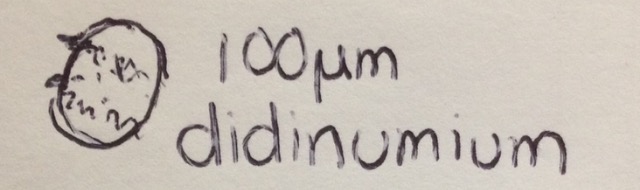 100µm
didinumium